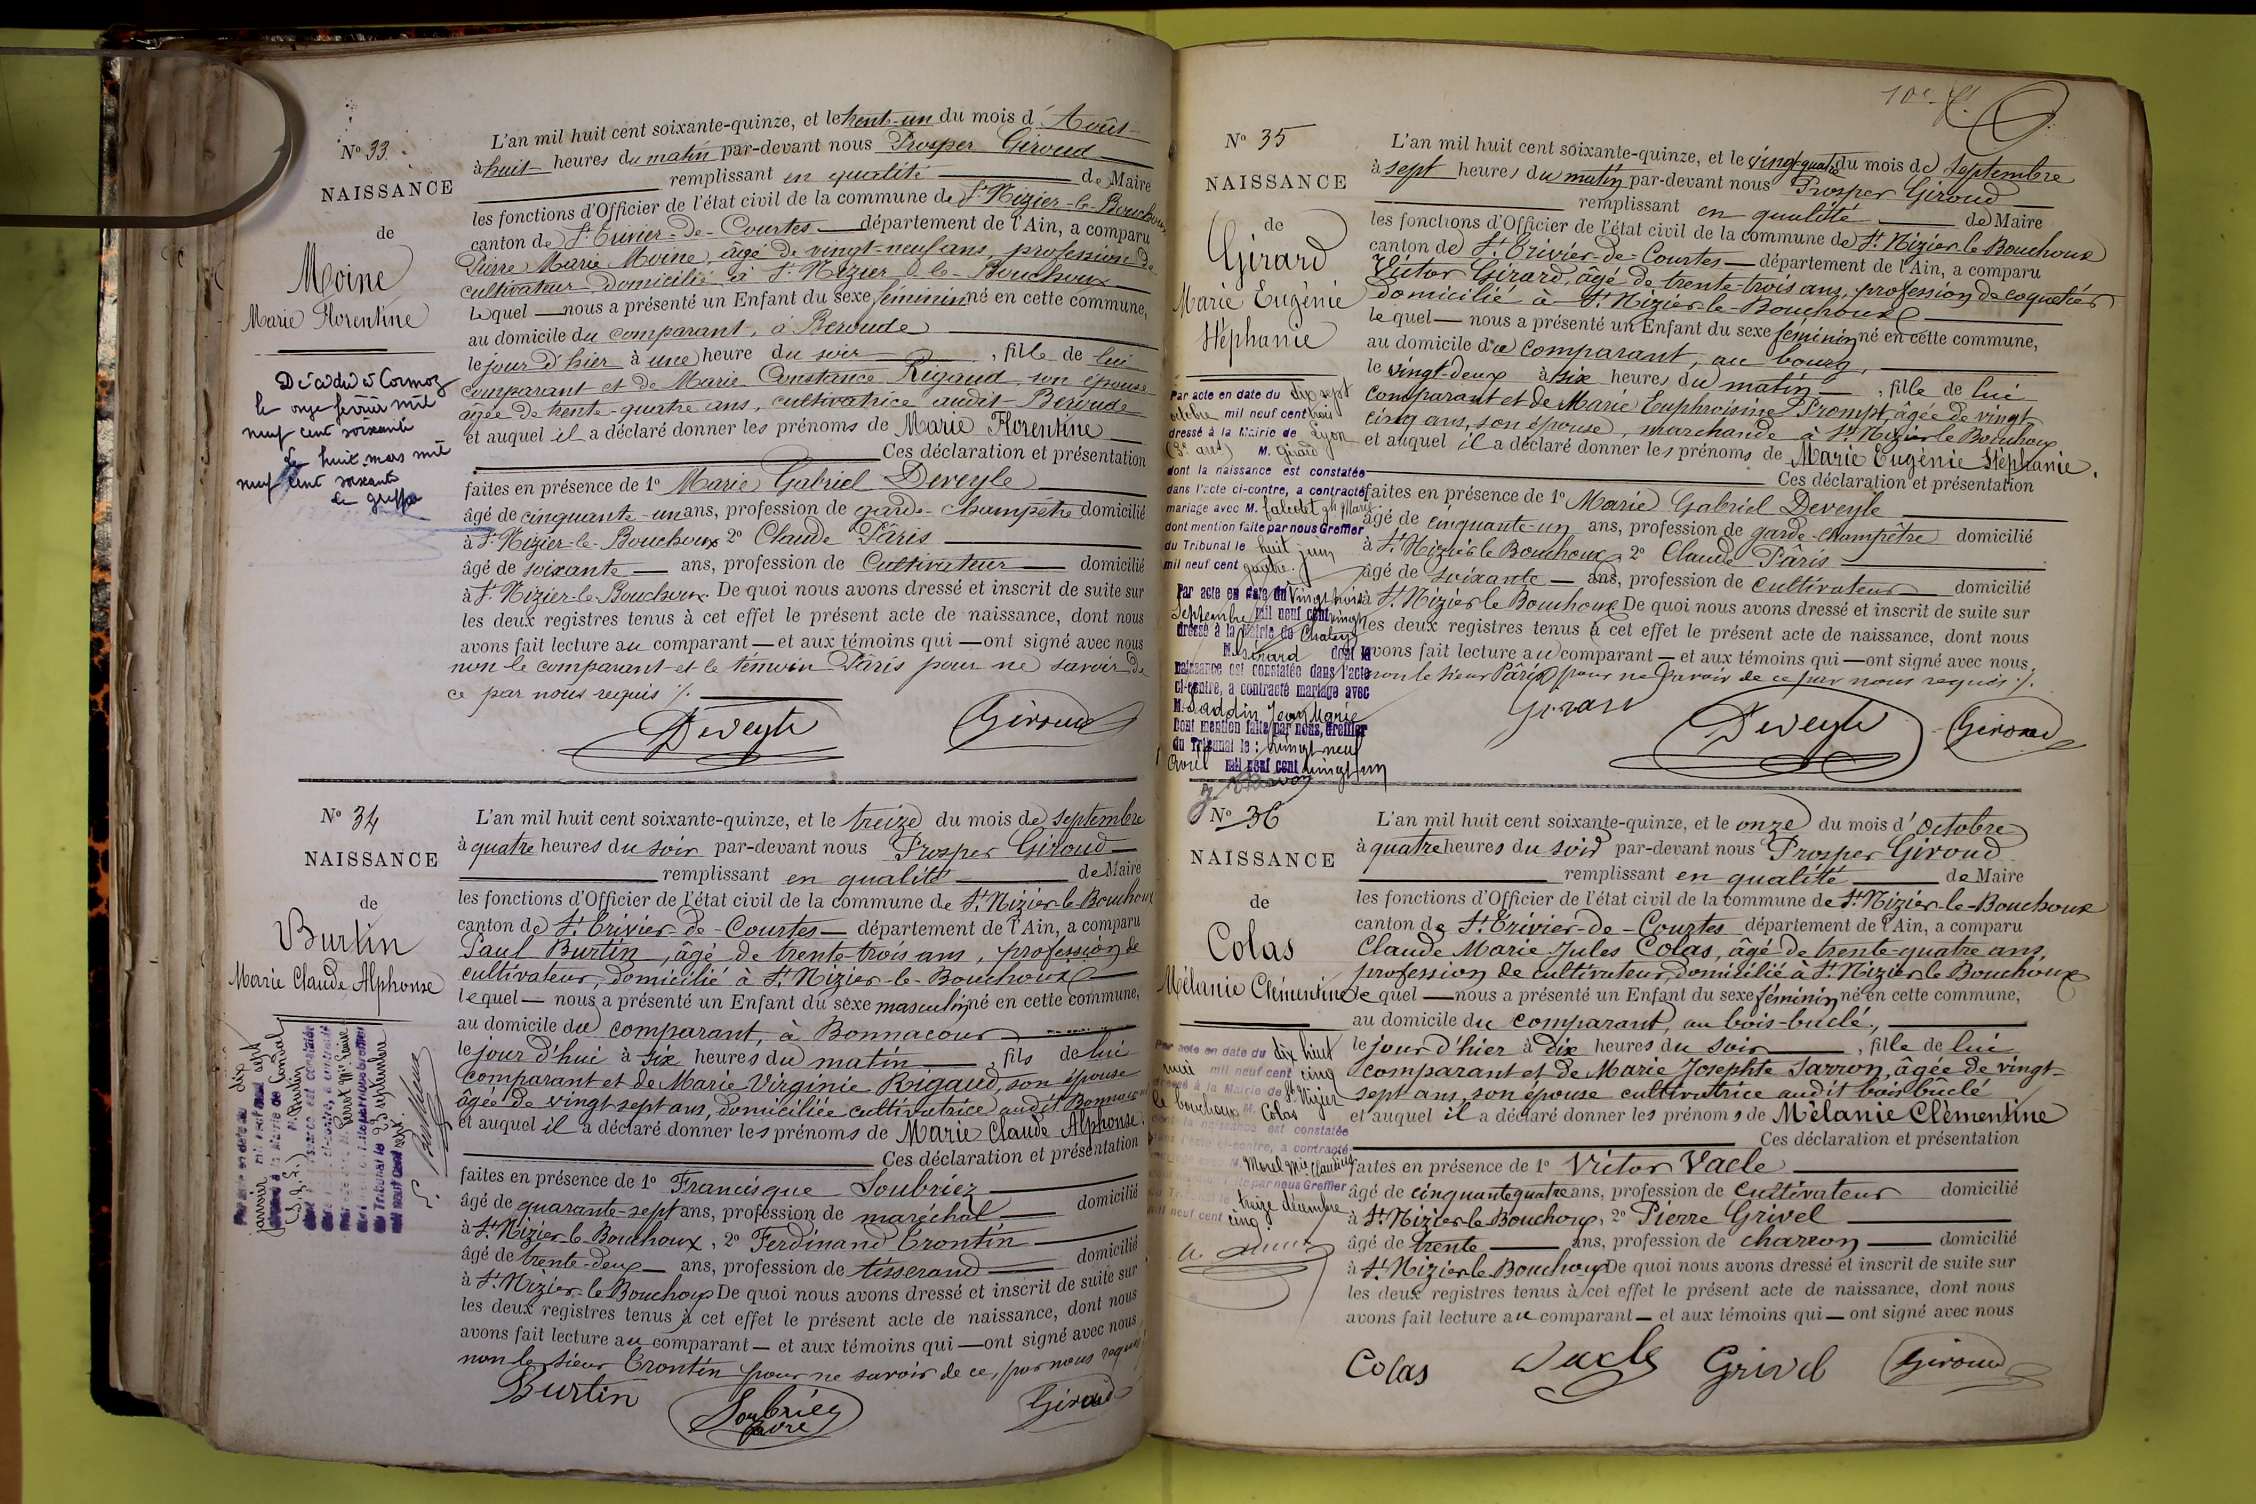 N° 33
NAISSANCE
de
Moine
Marie Florentine
Décédée à Cormoz
le onze février mil
neuf cent soixante
Le huit mars mil
neuf cent soixante
Le greffe
L'an mil huit cent soixante-quinze, et le trent-un du mois d'Août
à huit heures du matin par-devant nous Prosper Giroud
remplissant en qualité de Maire
les fonctions d'Officier de l'état civil de la commune de St Nizier-le-Bouchoux
canton de St Trivier-de-Courtes département de l'Ain, a comparu
Pierre Marie Moine, âgé de vingt-neuf ans, profession de
cultivateur domicilié à St Nizier-le-Bouchoux
lequel nous a présenté un Enfant du sexe féminin né en cette commune,
au domicile du comparant, à Beroude
le jour d'hier à une heure du soir, fille de lui
comparant et de Marie Constance Rigaud, son épouse
âgée de trente-quatre ans, cultivatrice audit Beroude
et auquel il a déclaré donner les prénoms de Marie Florentine
Ces déclaration et présentation
faites en présence de 1° Marie Gabriel Deveyle
âgé de cinquante-un ans, profession de garde-champêtre domicilié
à St Nizier-le-Bouchoux 2° Claude Pâris
âgé de soixante ans, profession de Cultivateur domicilié
à St Nizier-le-Bouchoux. De quoi nous avons dressé et inscrit de suite sur
les deux registres tenus à cet effet le présent acte de naissance, dont nous
avons fait lecture au comparant et aux témoins qui ont signé avec nous
non le comparant et le témoin Pâris pour ne savoir de
ce par nous requis /.
Deveyle Giroud
N° 34
NAISSANCE
de
Burtin
Marie Claude Alphonse
L'an mil huit cent soixante-quinze, et le treize du mois de septembre
à quatre heures du soir par-devant nous Prosper Giroud
remplissant en qualité de Maire
les fonctions d'Officier de l'état civil de la commune de St Nizier-le-Bouchoux
canton de St Trivier-de-Courtes département de l'Ain, a comparu
Paul Burtin, âgé de trente-trois ans, profession de
cultivateur, domicilié à St Nizier-le-Bouchoux
lequel nous a présenté un Enfant du sexe masculin né en cette commune,
au domicile du comparant, à Bonnacour
le jour d'hui à six heures du matin, fils de lui
comparant et de Marie Virginie Rigaud, son épouse
âgée de vingt-sept ans, domiciliée cultivatrice audit Bonnacour
et auquel il a déclaré donner les prénoms de Marie Claude Alphonse.
Ces déclaration et présentation
faites en présence de 1° Francisque Soubriez
âgé de quarante-sept ans, profession de maréchal domicilié
à St Nizier-le-Bouchoux, 2° Ferdinand Trontin
âgé de trente-deux ans, profession de tisserand domicilié
à St Nizier-le-Bouchoux De quoi nous avons dressé et inscrit de suite sur
les deux registres tenus à cet effet le présent acte de naissance, dont nous
avons fait lecture au comparant et aux témoins qui ont signé avec nous
non le sieur Trontin pour ne savoir de ce, par nous requis
Burtin Giroud
N° 35
NAISSANCE
de
Girard
Marie Eugénie
Stéphanie
Par acte en date du dix sept
octobre mil neuf cent trois
dressé à la Mairie de Lyon
M. Girard
dont la naissance est constatée
dans l'acte ci-contre, a contracté
mariage avec M.
dont mention faite par nous Greffier
du Tribunal le huit juin
mil neuf cent quatre.
Par acte en date du vingt trois
Septembre mil neuf cent vingt
dressé à la Mairie de
M. Girard dont la
naissance est constatée dans l'acte
ci-contre, a contracté mariage avec
M. Jean Marie
Dont mention faite par nous, Greffier
du Tribunal le : vingt neuf
Avril mil neuf cent vingt un
L'an mil huit cent soixante-quinze, et le vingt-quatre du mois de septembre
à sept heures du matin par-devant nous Prosper Giroud
remplissant en qualité de Maire
les fonctions d'Officier de l'état civil de la commune de St Nizier le Bouchoux
canton de St Trivier-de-Courtes département de l'Ain, a comparu
Victor Girard, âgé de trente-trois ans, profession de coquetier
domicilié à St Nizier-le-Bouchoux
lequel nous a présenté un Enfant du sexe féminin né en cette commune,
au domicile du comparant, au bourg,
le vingt-deux à six heures du matin, fille de lui
comparant et de Marie Euphroisine Prompt, âgée de vingt
cinq ans, son épouse, marchande à St Nizier le Bouchoux
et auquel il a déclaré donner les prénoms de Marie Eugénie Stéphanie.
Ces déclaration et présentation
faites en présence de 1° Marie Gabriel Deveyle
âgé de cinquante-un ans, profession de garde-champêtre domicilié
à St Nizier le Bouchoux 2° Claude Pâris
âgé de soixante ans, profession de cultivateur domicilié
à St Nizier le Bouchoux De quoi nous avons dressé et inscrit de suite sur
les deux registres tenus à cet effet le présent acte de naissance, dont nous
avons fait lecture au comparant et aux témoins qui ont signé avec nous,
non le sieur Pâris pour ne savoir de ce par nous requis /.
Girard Deveyle Giroud
N° 36
NAISSANCE
de
Colas
Mélanie Clémentine
Par acte en date du dix huit
mai mil neuf cent cinq
dressé à la Mairie de St Nizier
le bouchoux M. Colas
dont la naissance est constatée
dans l'acte ci-contre, a contracté
mariage avec M. Morel Mie Claudius
dont mention faite par nous Greffier
du Tribunal le treize décembre
mil neuf cent cinq.
L'an mil huit cent soixante-quinze, et le onze du mois d'octobre
à quatre heures du soir par-devant nous Prosper Giroud
remplissant en qualité de Maire
les fonctions d'Officier de l'état civil de la commune de St Nizier-le-Bouchoux
canton de St Trivier-de-Courtes département de l'Ain, a comparu
Claude Marie Jules Colas, âgé de trente-quatre ans,
profession de cultivateur, domicilié à St Nizier le Bouchoux
lequel nous a présenté un Enfant du sexe féminin né en cette commune,
au domicile du comparant, au bois-buclé,
le jour d'hier à dix heures du soir, fille de lui
comparant et de Marie Josephte Sarron, âgée de vingt-
sept ans, son épouse cultivatrice audit bois bûclé
et auquel il a déclaré donner les prénoms de Mélanie Clémentine
Ces déclaration et présentation
faites en présence de 1° Victor Vacle
âgé de cinquante quatre ans, profession de cultivateur domicilié
à St Nizier-le-Bouchoux, 2° Pierre Grivel
âgé de trente ans, profession de charron domicilié
à St Nizier-le-Bouchoux De quoi nous avons dressé et inscrit de suite sur
les deux registres tenus à cet effet le présent acte de naissance, dont nous
avons fait lecture au comparant et aux témoins qui ont signé avec nous
Colas Vacle Grivel Giroud